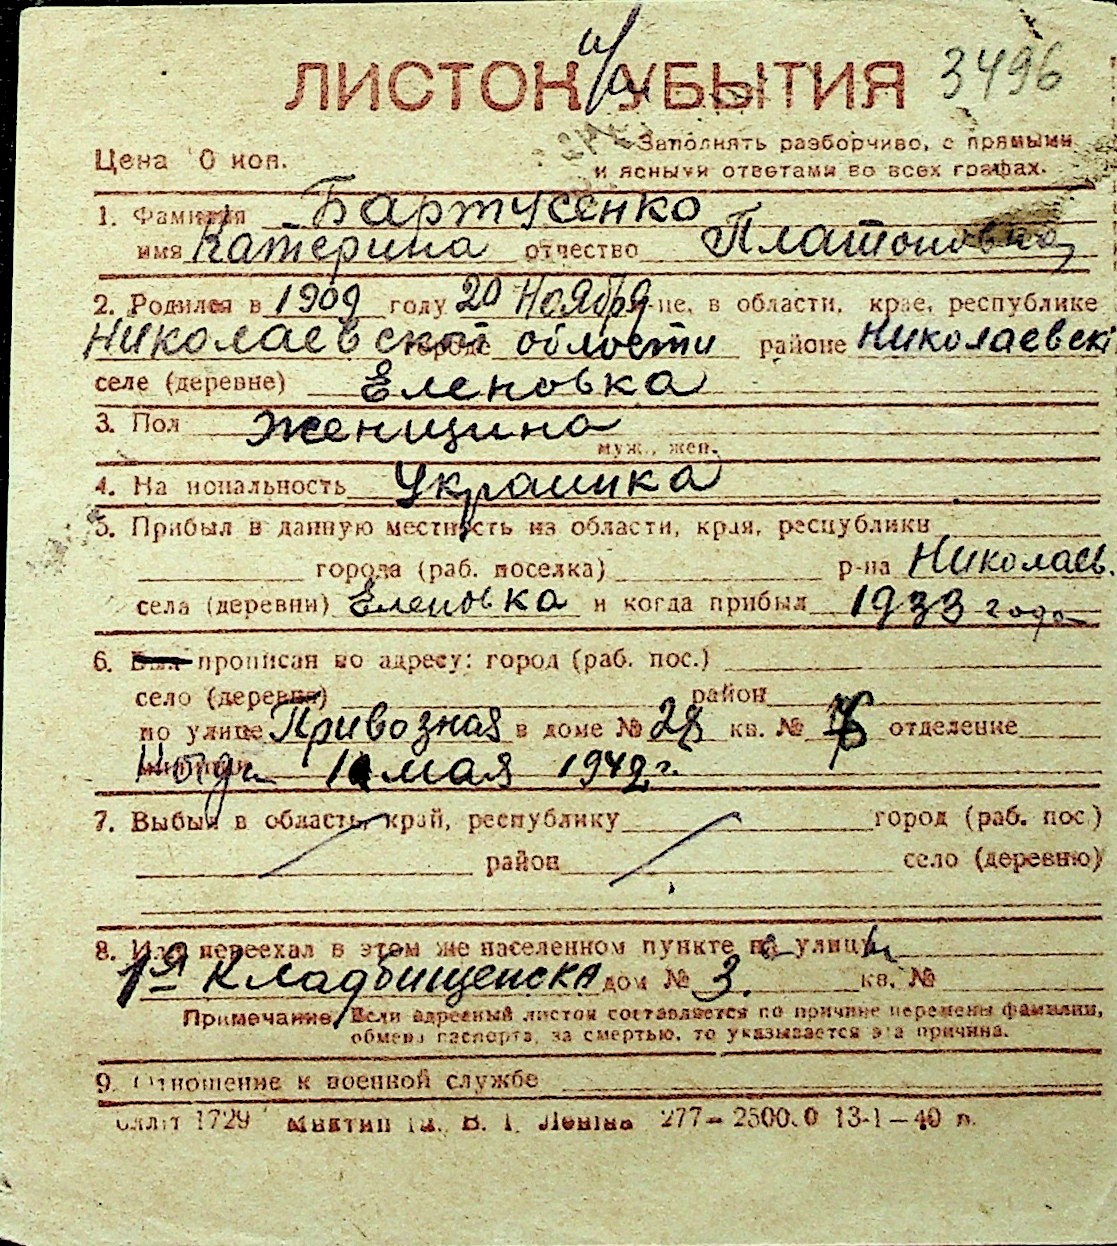 ЛИСТОК УБЫТИЯ 3496
Цена 10 коп. Заполнять разборчиво, с прямыми
и ясными ответами во всех графах.
1. Фамилия Бартусенко
имя Катерина отчество Платоновна
2. Родился в 1909 году 20 Ноября не, в области, крае, республике
Николаевской городе области районе Николаевск
селе (деревне) Еленовка
3. Пол Женщина
муж., жен.
4. Национальность Украинка
5. Прибыл в данную местность из области, края, республики
города (раб. поселка) р-на Николаев.
села (деревни) Еленовка и когда прибыл 1933 года
6. Был прописан по адресу: город (раб. пос.)
село (деревня) район
по улице Привозная в доме № 28 кв. № отделение
мая 1942 г.
7. Выбыл в область, край, республику город (раб. пос.)
район село (деревню)
8. Или переехал в этом же населенном пункте на улицу
1-я Кладбищенска дом № 3. кв. №
Примечание. Если адресный листок составляется по причине перемены фамилии,
обмена паспорта, за смертью, то указывается эта причина.
9. Отношение к военной службе
1729 им. В. І. Леніна 277— 2500.0 13-1—40 п.